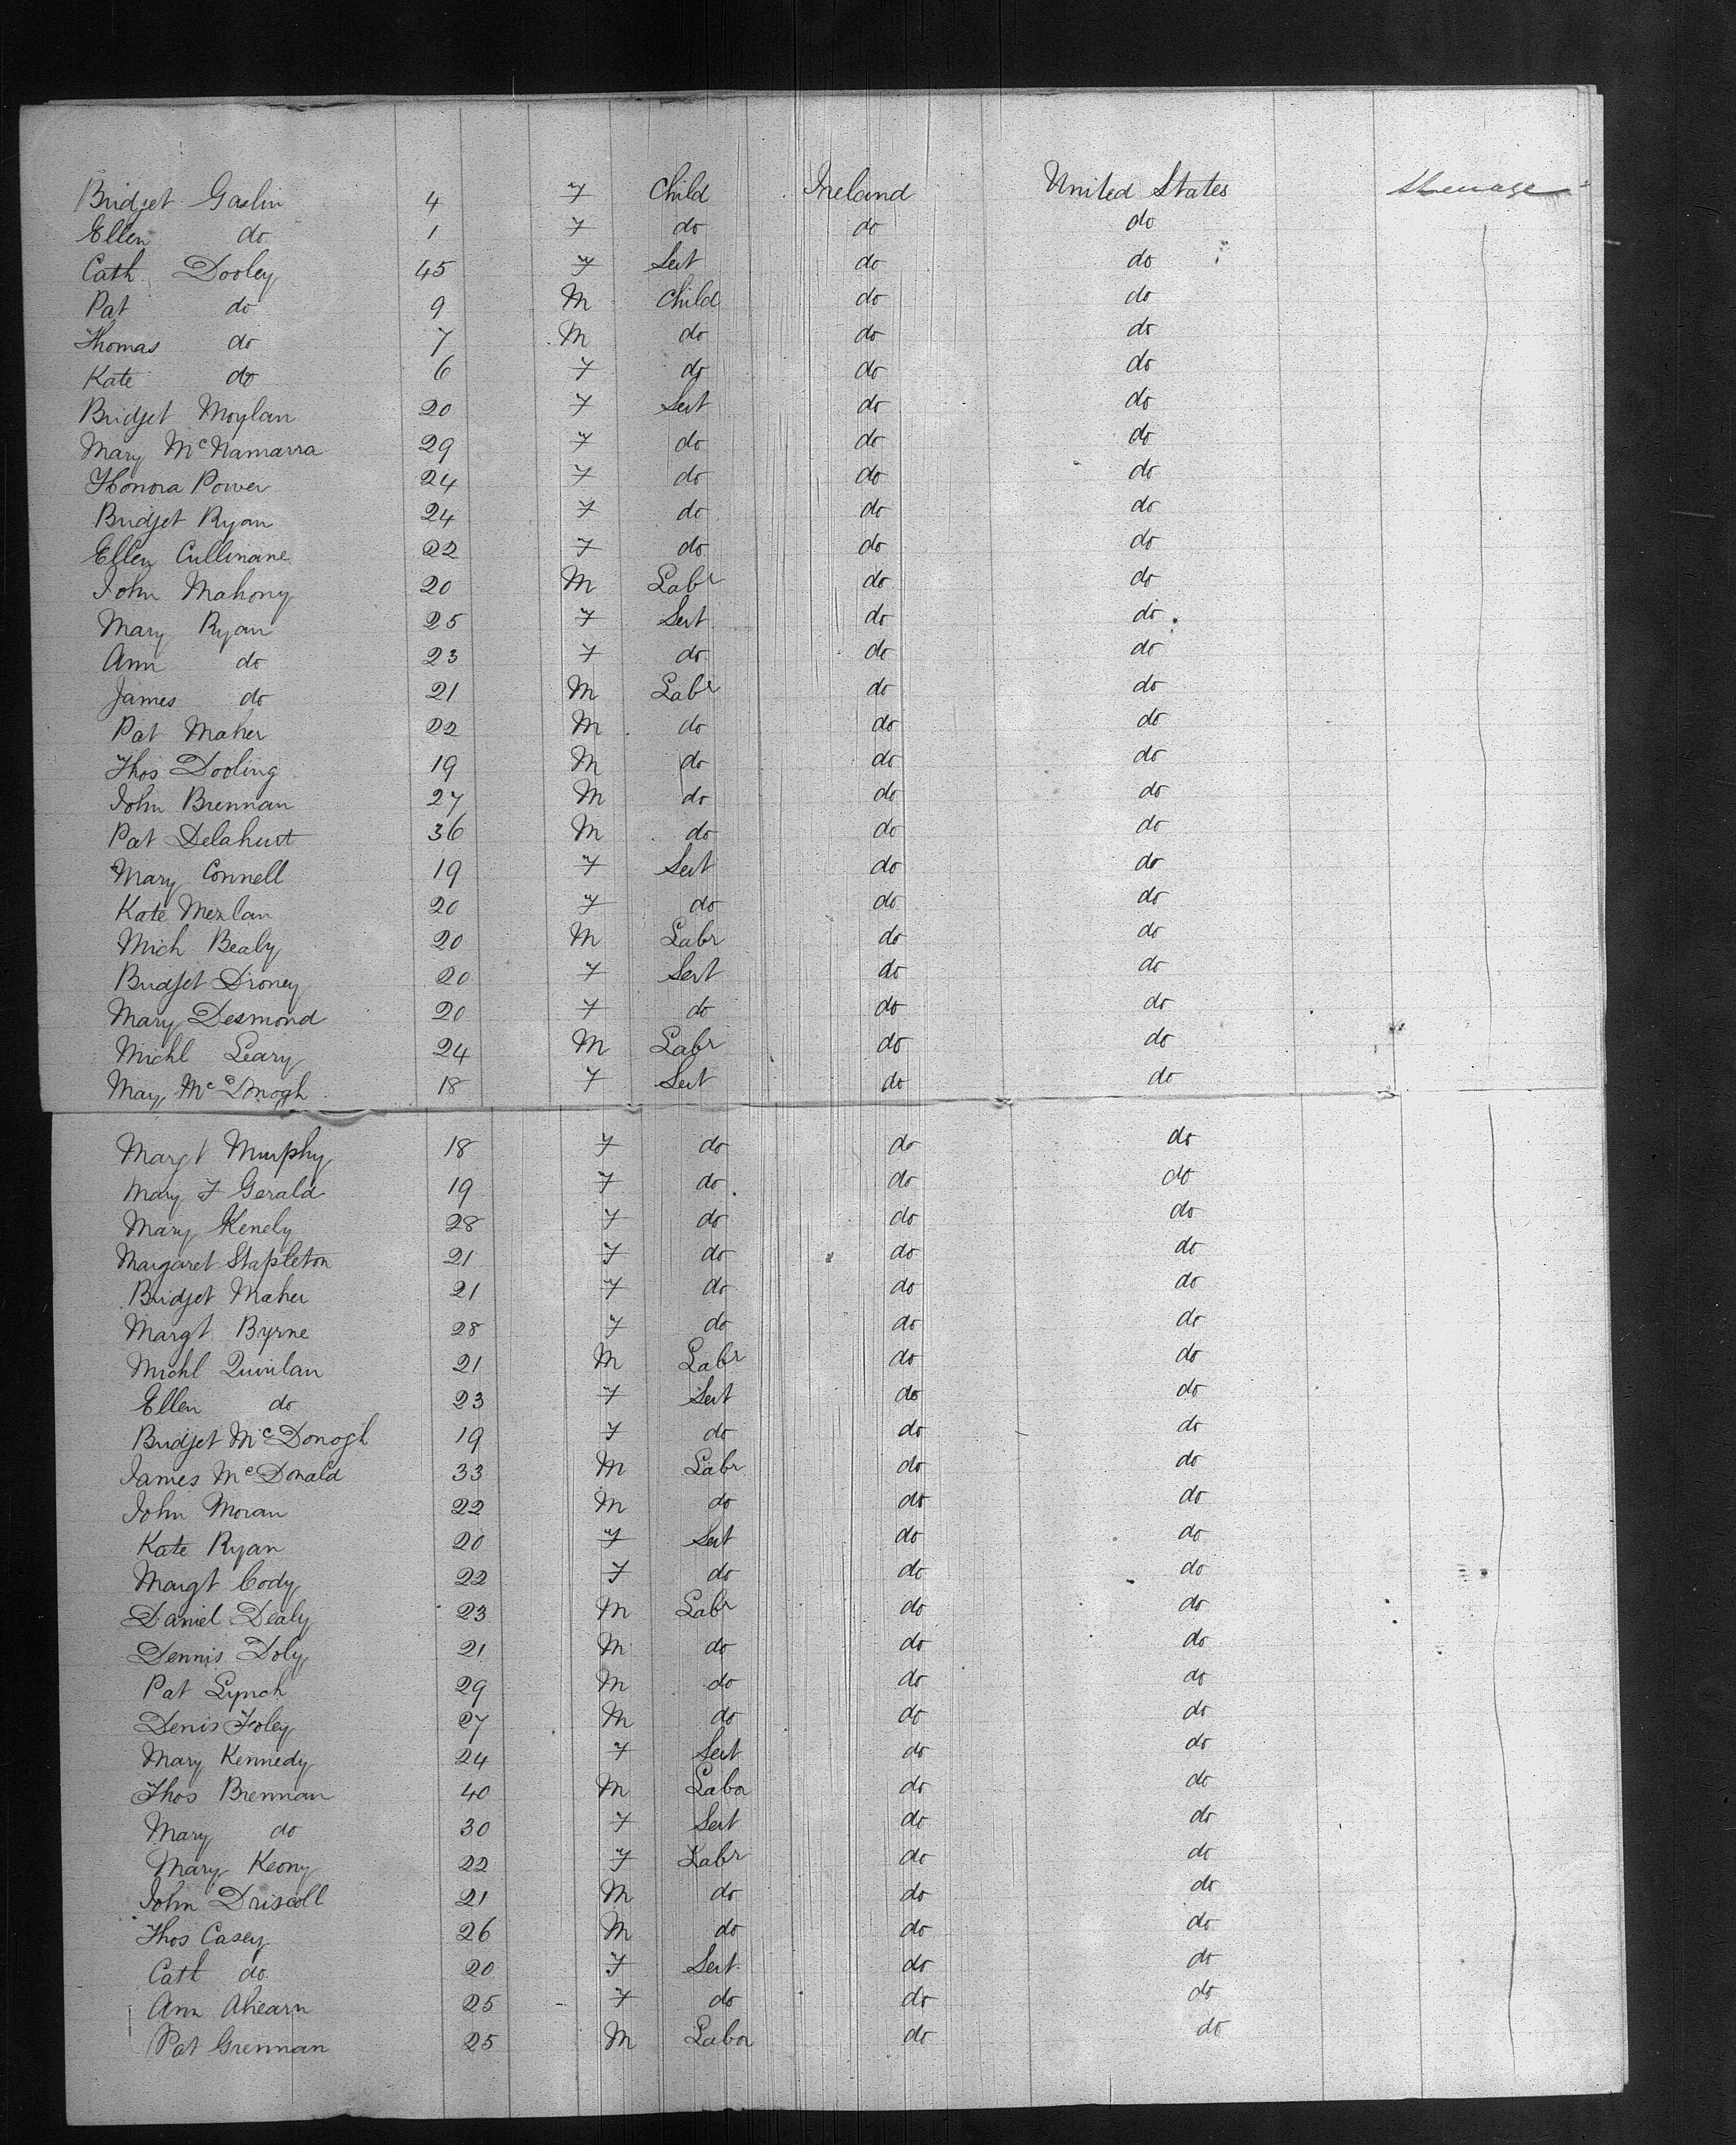 Bridget Gaslin 4 F Child Ireland United States Steerage
Ellen do 1 F do do do
Cath. Dooley 45 F Sert do do
Pat do 9 M Child do do
Thomas do 7 M do do do
Kate do 6 F do do do
Bridget Moylan 20 F Sert do do
Mary McNamarra 29 F do do do
Honora Power 24 F do do do
Bridget Ryan 24 F do do do
Ellen Cullinane 22 F do do do
John Mahony 20 M Labr do do
Mary Ryan 25 F Sert do do
Ann do 23 F do do do
James do 21 M Labr do do
Pat Maher 22 M do do do
Thos Dooling 19 M do do do
John Brennan 27 M do do do
Pat Delahunt 36 M do do do
Mary Connell 19 F Sert do do
Kate 20 F do do do
Mich Bealy 20 M Labr do do
Bridget Droney 20 F Sert do do
Mary Desmond 20 F do do do
Michl Leary 24 M Labr do do
Mary McDonogh 18 F Sert do do
Margt Murphy 18 F do do do
Mary F Gerald 19 F do do do
Mary Kenely 28 F do do do
Margaret Stapleton 21 F do do do
Bridget Maher 21 F do do do
Margt Byrne 28 F do do do
Michl Quinlan 21 M Labr do do
Ellen do 23 F Sert do do
Bridget McDonogh 19 F do do do
James McDonald 33 M Labr do do
John Moran 22 M do do do
Kate Ryan 20 F Sert do do
Margt Cody 22 F do do do
Daniel Dealy 23 M Labr do do
Dennis Doly 21 M do do do
Pat Lynch 29 M do do do
Denis Foley 27 M do do do
Mary Kennedy 24 F Sert do do
Thos Brennan 40 M Labor do do
Mary do 30 F Sert do do
Mary Keony 22 F Labr do do
John Driscoll 21 M do do do
Thos Casey 26 M do do do
Cath do 20 F Sert do do
Ann Ahearn 25 F do do do
Pat Grennan 25 M Labor do do